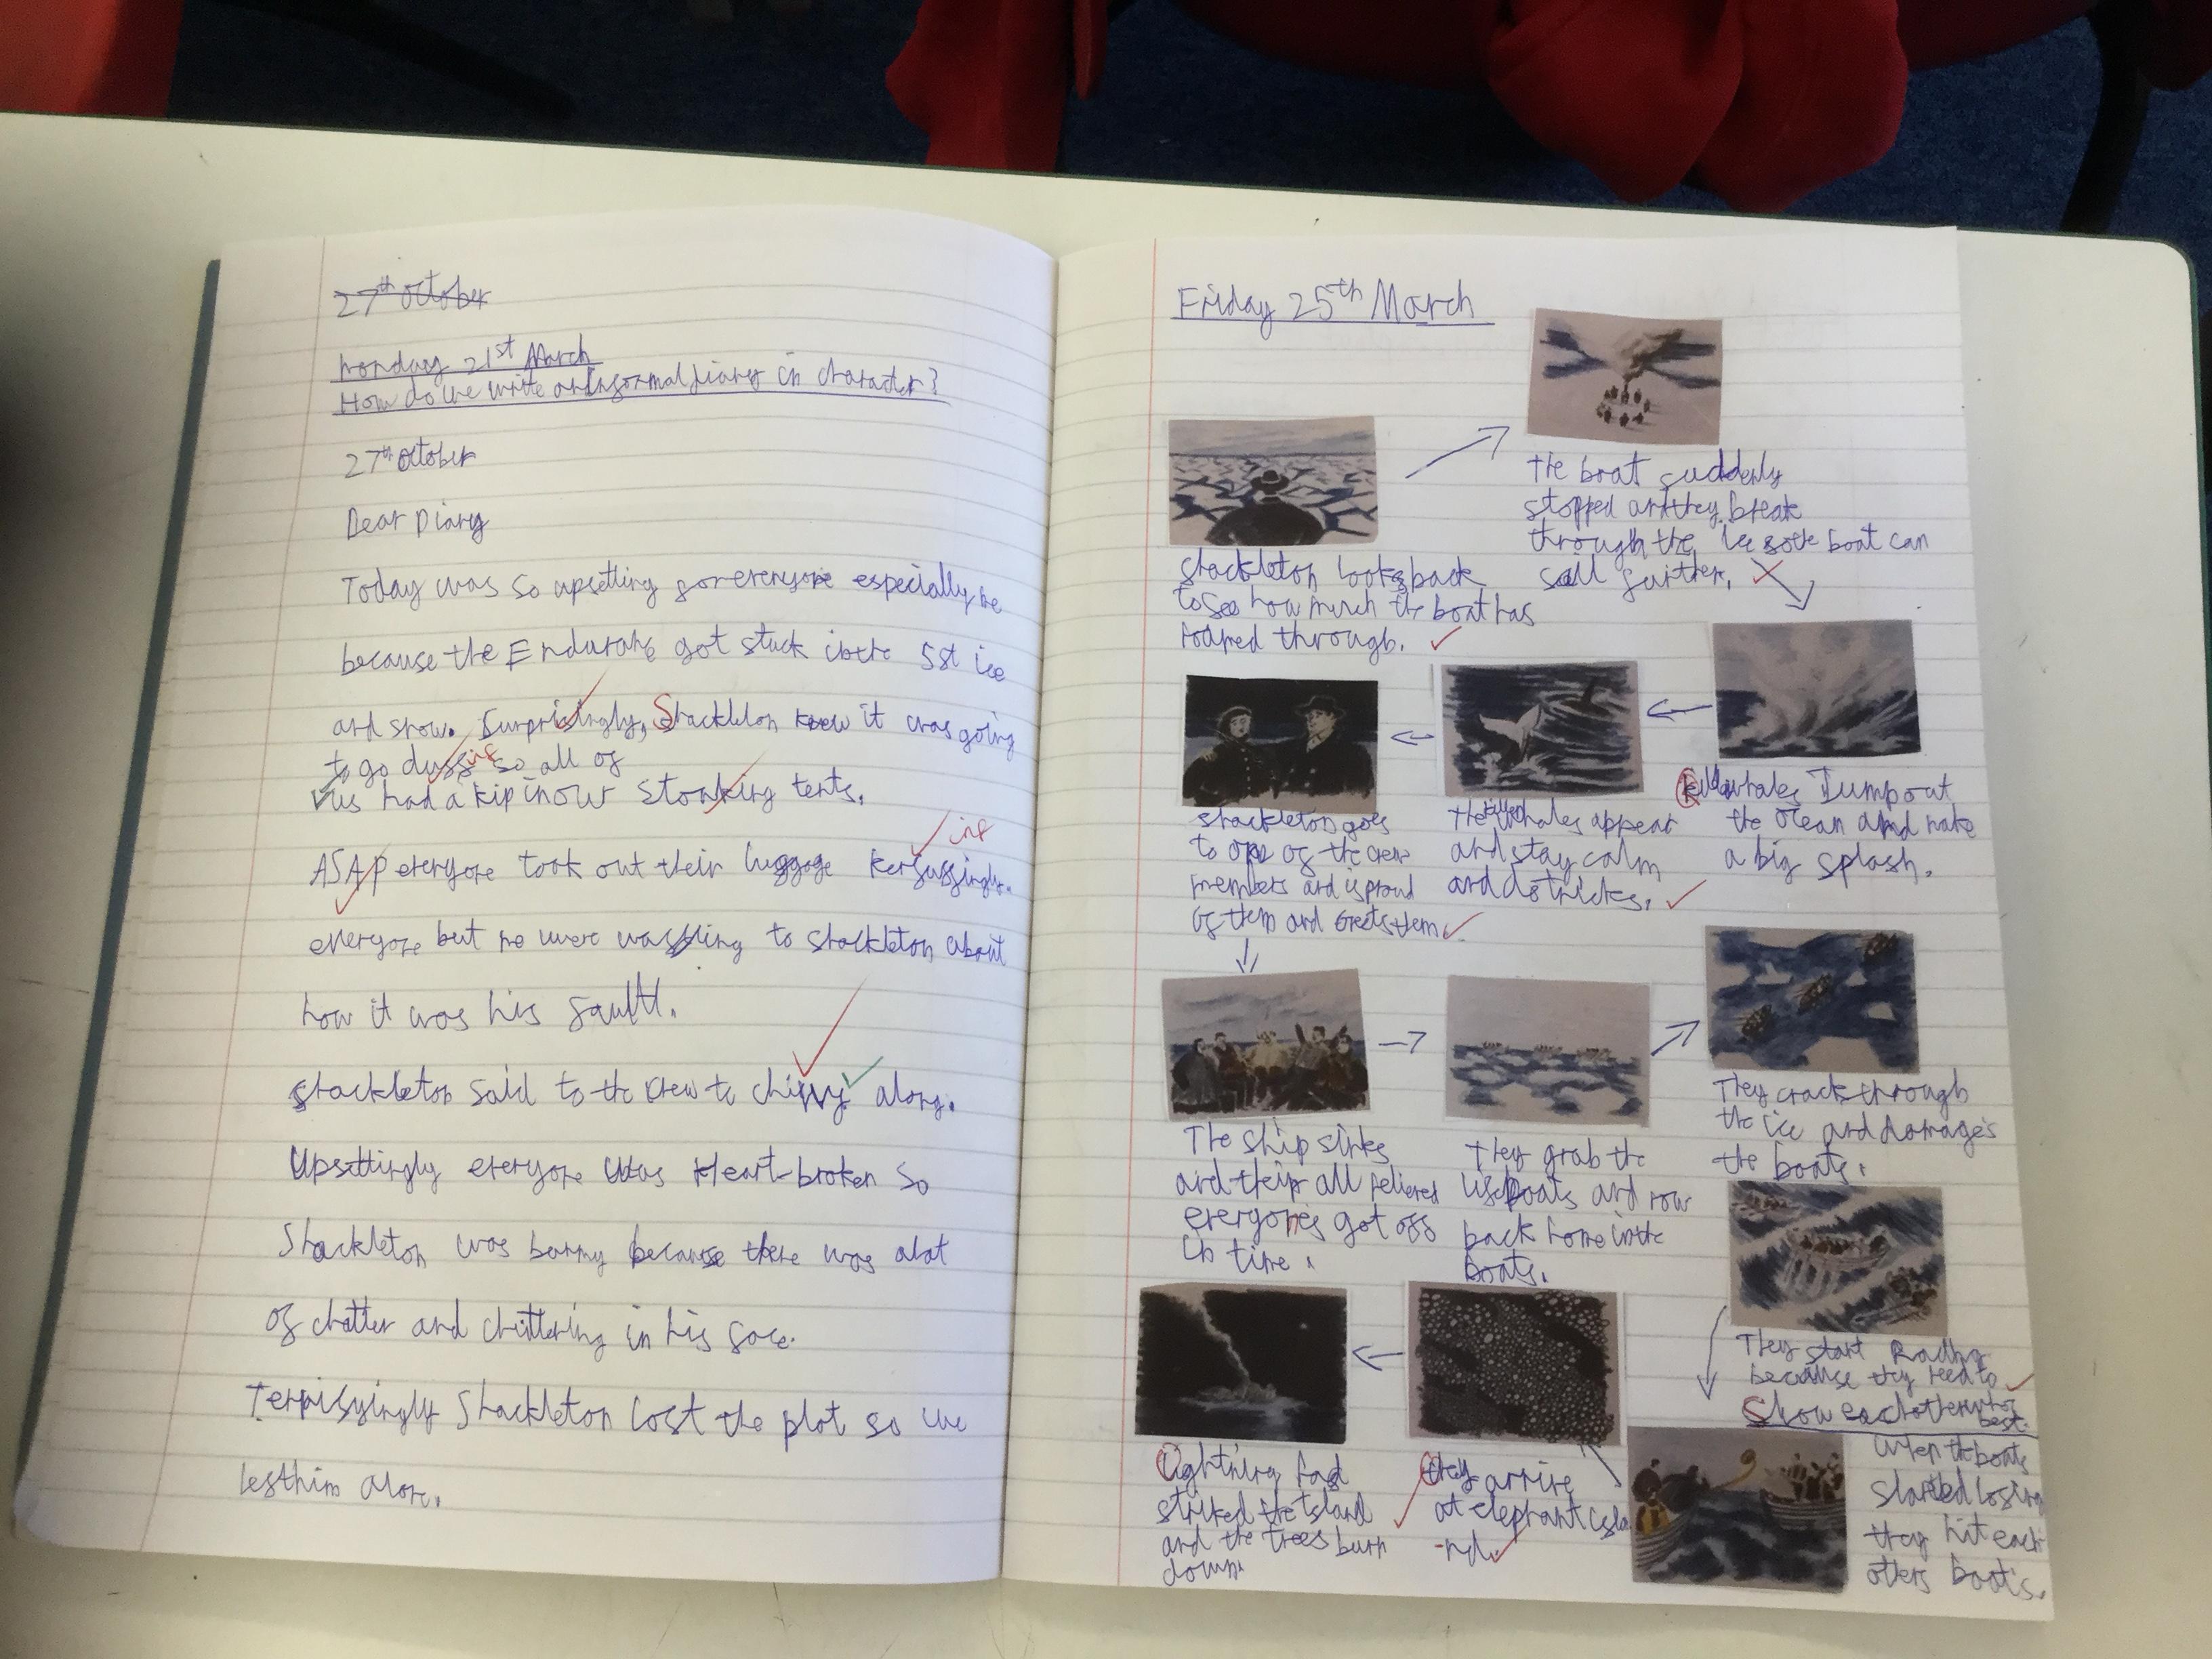 27th October
Monday 21st March
How do we write an informal diary in character?
27th October
Dear Diary
Today was so upsetting for everyone especially me
because the Endurance got stuck in the ice
and snow. Surprisingly, Shackleton knew it was going
to go so all of
us had a kip in our stonking tents.
ASAP everyone took out their luggage kerfussingly.
inf
everyone but me were waffling to Shackleton about
how it was his fault.
Shackleton said to the crew to chivvy along.
Upsettingly everyone was Heart-broken so
Shackleton was barmy because there was alot
of chatter and chittering in his face.
Terrifyingly Shackleton lost the plot so we
left him alone.
Friday 25th March
The boat suddenly
stopped and they break
through the ice so the boat can
sail further.
Shackleton looks back
to see how much the boat has
roamed through.
Killer whales Jump out
the ocean and make
a big splash.
The killer whales appear
and stay calm
and do tricks.
Shackleton goes
to one of the crew
members and is proud
of them and Greets them
The ship sinks
and their all relieved
everyones got off
in time.
They grab the
lifeboats and row
back home in the
boats.
They crack through
the ice and damages
the boats.
They start Racing
because they need to
Show each other whos
best.
When the boats
started losing
they hit each
others boats.
they arrive
at elephant isla
-nd.
Lightning had
striked the island
and the trees burn
down.